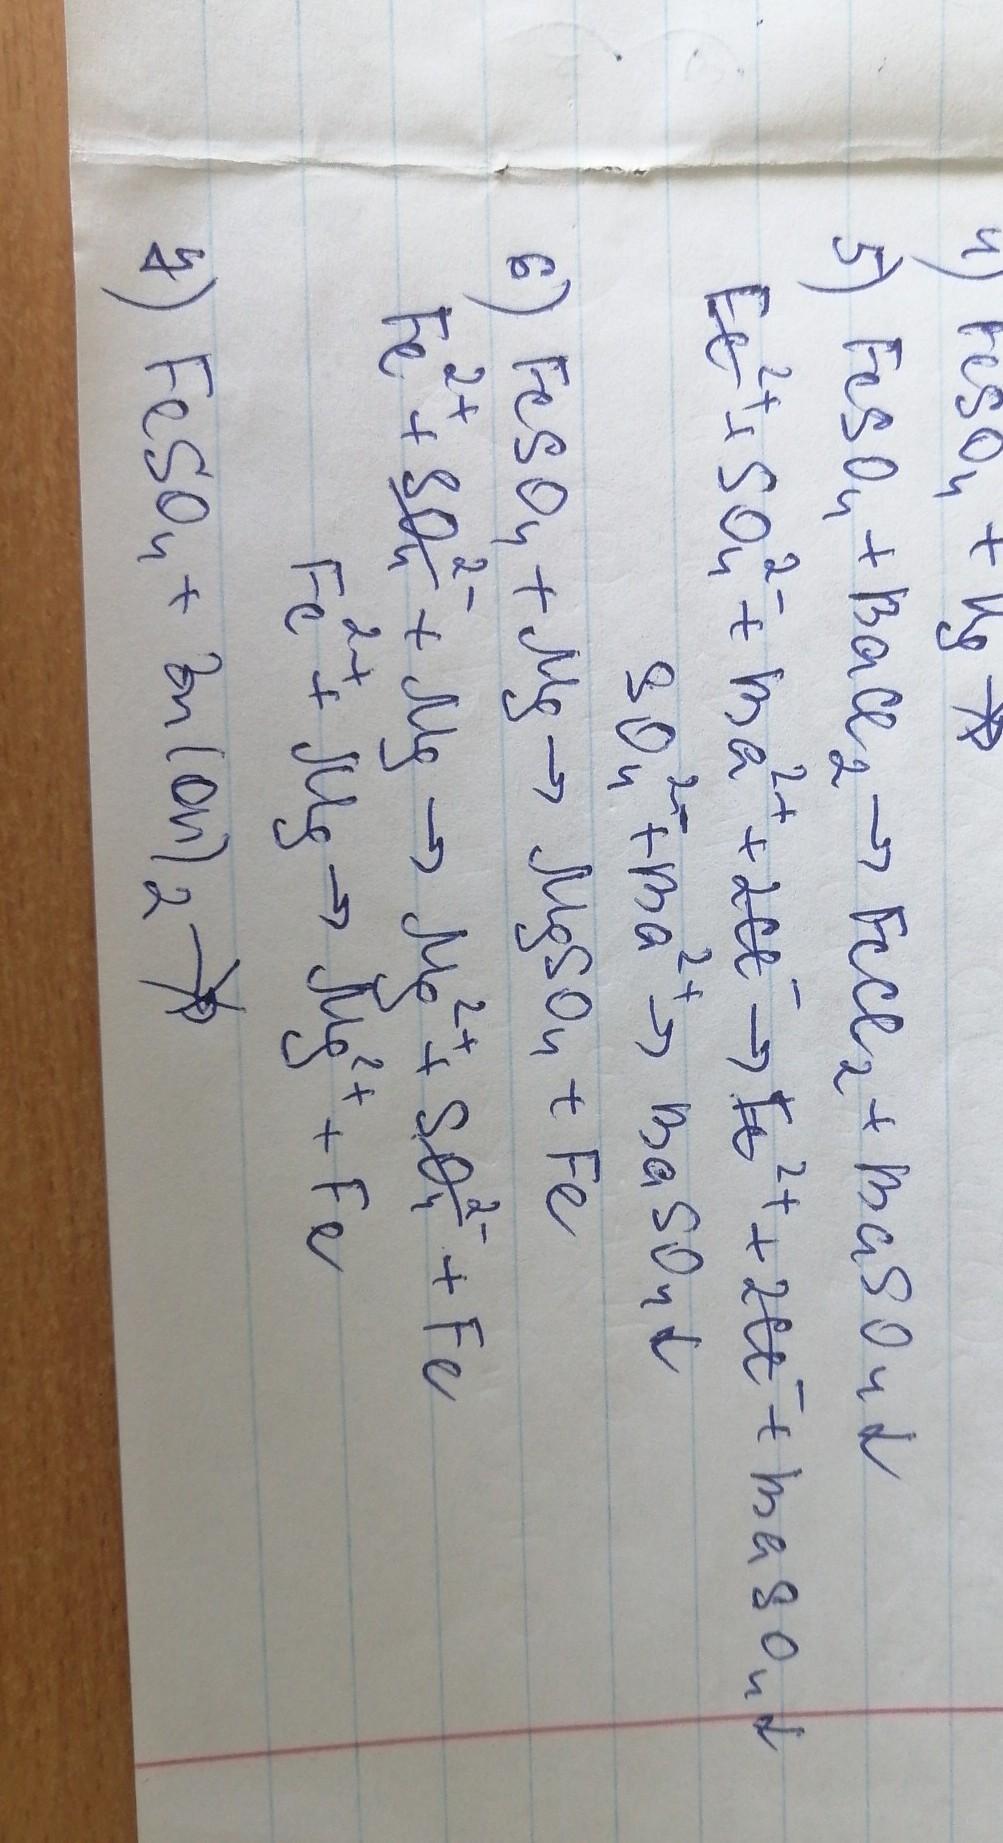 4) FeSO₄ + Hg ↛
5) FeSO₄ + BaCl₂ → FeCl₂ + BaSO₄↓
Fe²⁺ + SO₄²⁻ + Ba²⁺ + 2Cl⁻ → Fe²⁺ + 2Cl⁻ + BaSO₄↓
SO₄²⁻ + Ba²⁺ → BaSO₄↓
6) FeSO₄ + Mg → MgSO₄ + Fe
Fe²⁺ + SO₄²⁻ + Mg → Mg²⁺ + SO₄²⁻ + Fe
Fe²⁺ + Mg → Mg²⁺ + Fe
7) FeSO₄ + Zn(OH)₂ ↛